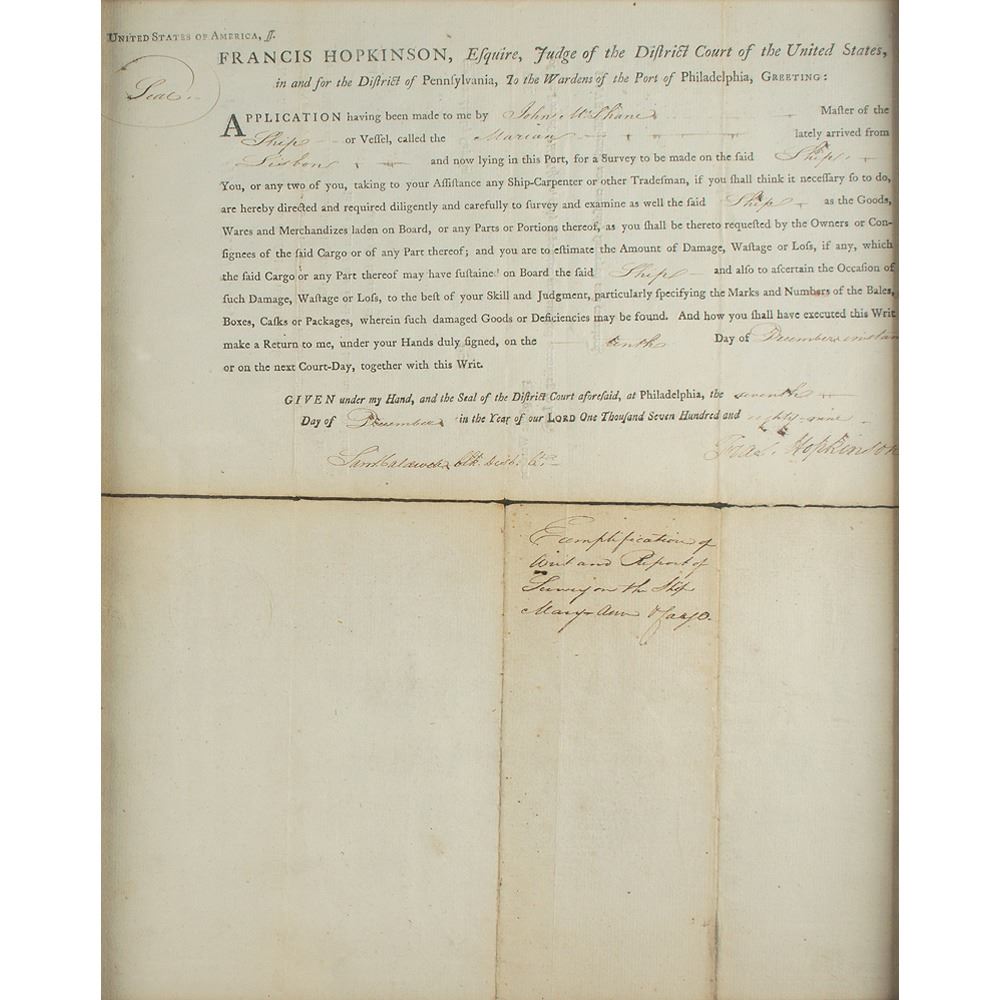 UNITED STATES OF AMERICA, ſſ.
FRANCIS HOPKINSON, Eſquire, Judge of the Diſtrict Court of the United States,
in and for the Diſtrict of Pennſylvania, To the Wardens of the Port of Philadelphia, GREETING:
Seal
APPLICATION having been made to me by John McShane Maſter of the
Ship or Veſſel, called the Marian lately arrived from
Lisbon and now lying in this Port, for a Survey to be made on the ſaid Ship
You, or any two of you, taking to your Aſſiſtance any Ship-Carpenter or other Tradeſman, if you ſhall think it neceſſary ſo to do,
are hereby directed and required diligently and carefully to ſurvey and examine as well the ſaid Ship as the Goods,
Wares and Merchandizes laden on Board, or any Parts or Portions thereof, as you ſhall be thereto requeſted by the Owners or Con-
ſignees of the ſaid Cargo or of any Part thereof; and you are to eſtimate the Amount of Damage, Waſtage or Loſs, if any, which
the ſaid Cargo or any Part thereof may have ſuſtained on Board the ſaid Ship and alſo to aſcertain the Occaſion of
ſuch Damage, Waſtage or Loſs, to the beſt of your Skill and Judgment, particularly ſpecifying the Marks and Numbers of the Bales,
Boxes, Caſks or Packages, wherein ſuch damaged Goods or Deficiencies may be found. And how you ſhall have executed this Writ
make a Return to me, under your Hands duly ſigned, on the tenth Day of December instan
or on the next Court-Day, together with this Writ.
GIVEN under my Hand, and the Seal of the Diſtrict Court aforeſaid, at Philadelphia, the seventh
Day of December in the Year of our LORD One Thouſand Seven Hundred and eighty-nine
Fras. Hopkinson
Sam Caldwell Clk. Dist. Ct.
Exemplification of
Writ and Report of
Survey on the Ship
Mary Ann & Cargo.